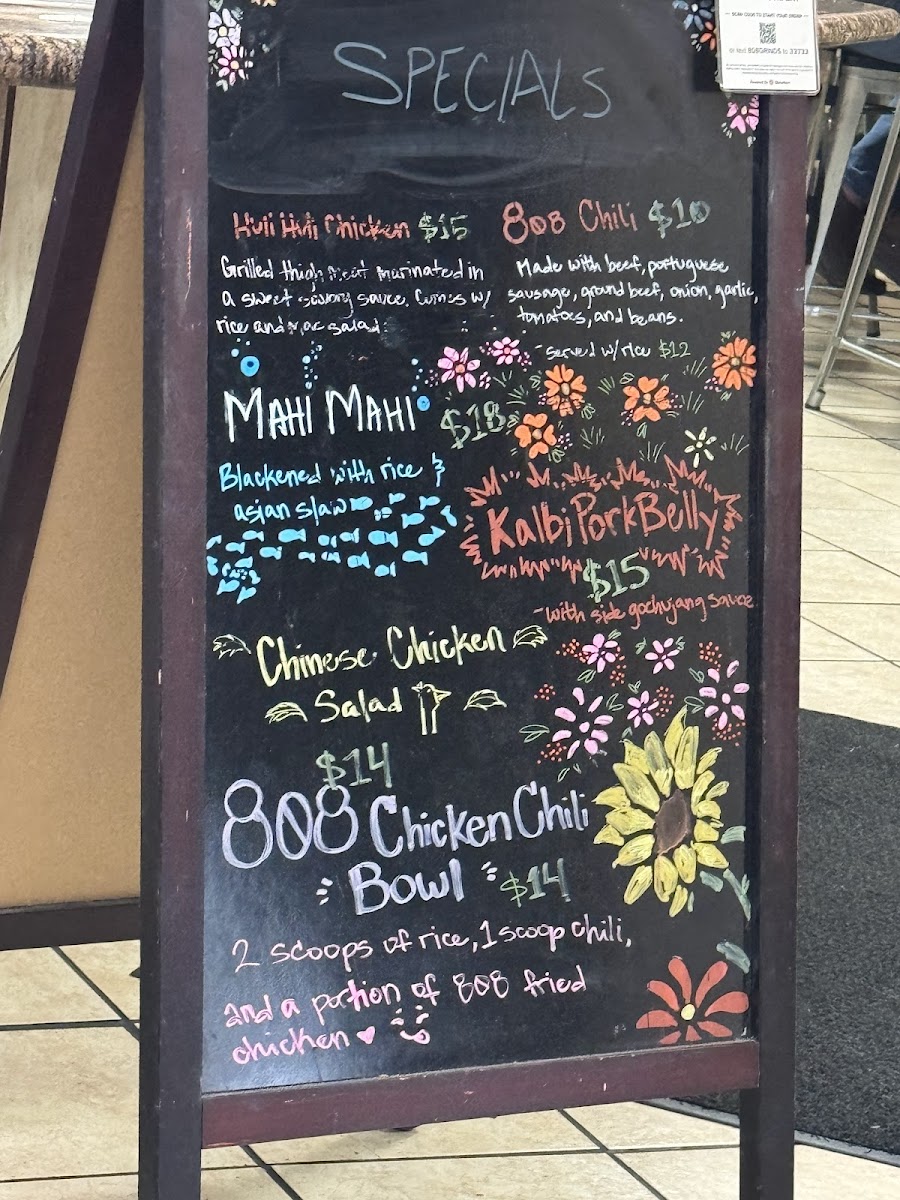 SCAN CODE TO START YOUR ORDER
or text 808GRINDS to 33733
SPECIALS
Huli Huli Chicken $15
Grilled thigh meat marinated in
a sweet savory sauce. Comes w/
rice and mac salad
808 Chili $10
Made with beef, portuguese
sausage, ground beef, onion, garlic,
tomatoes, and beans.
~served w/rice $12
MAHI MAHI $18
Blackened with rice &
asian slaw
Kalbi Pork Belly
$15
~with side gochujang sauce
Chinese Chicken
Salad
$14
808 Chicken Chili
Bowl $14
2 scoops of rice, 1 scoop chili,
and a portion of 808 fried
chicken